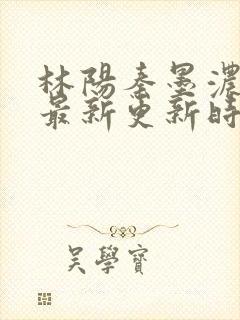 林陽秦墨濃
最新更新時
吴學寶